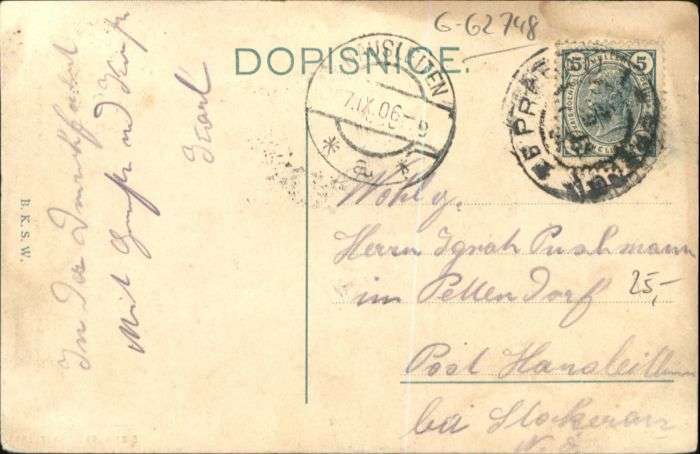 G-62748
DOPISNICE.
HANSLEITEN
7.IX.06-9
a
5 5
PRA
B.K.S.W.
In der Durchfahrt
Mit Gruß und Kuß
Karl
Wohlg.
Herrn Ignatz Puschmann
im Pettendorf
25,-
Post Hansleitten
bei Stockerau
N.Ö.